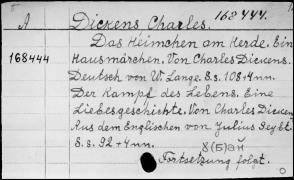 168444.
A Dickens Charles.
Das Heimchen am Herde. Ein
168444 Hausmärchen. Von Charles Dickens.
Deutsch von W. Lange. 8.s. 108+4nn.
Der Kampf des Lebens. Eine
Liebesgeschichte. Von Charles Dickens
Aus dem Englischen von Julius Seybt.
8.s. 92+4nn.
Fortsetzung folgt.